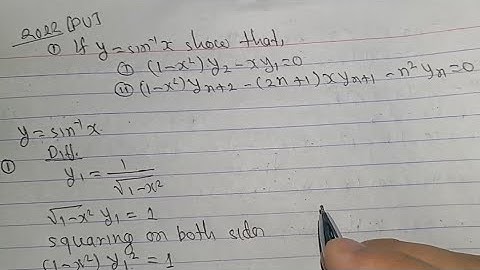 2022 [PU]
① If y = sin⁻¹x show that,
① (1-x²) y₂ - xy₁ = 0
② (1-x²) yₙ₊₂ - (2n+1) x yₙ₊₁ - n² yₙ = 0
y = sin⁻¹x.
① Diff.
y₁ = 1/√1-x²
√1-x² y₁ = 1
squaring on both sides
(1-x²) y₁² = 1